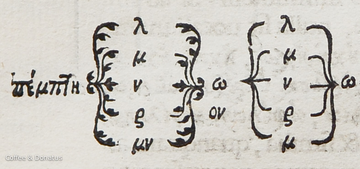 λ λ
μ μ
πέμπτη ν ω ν ω
ϱ ον ϱ
μν μ
Coffee & Donatus